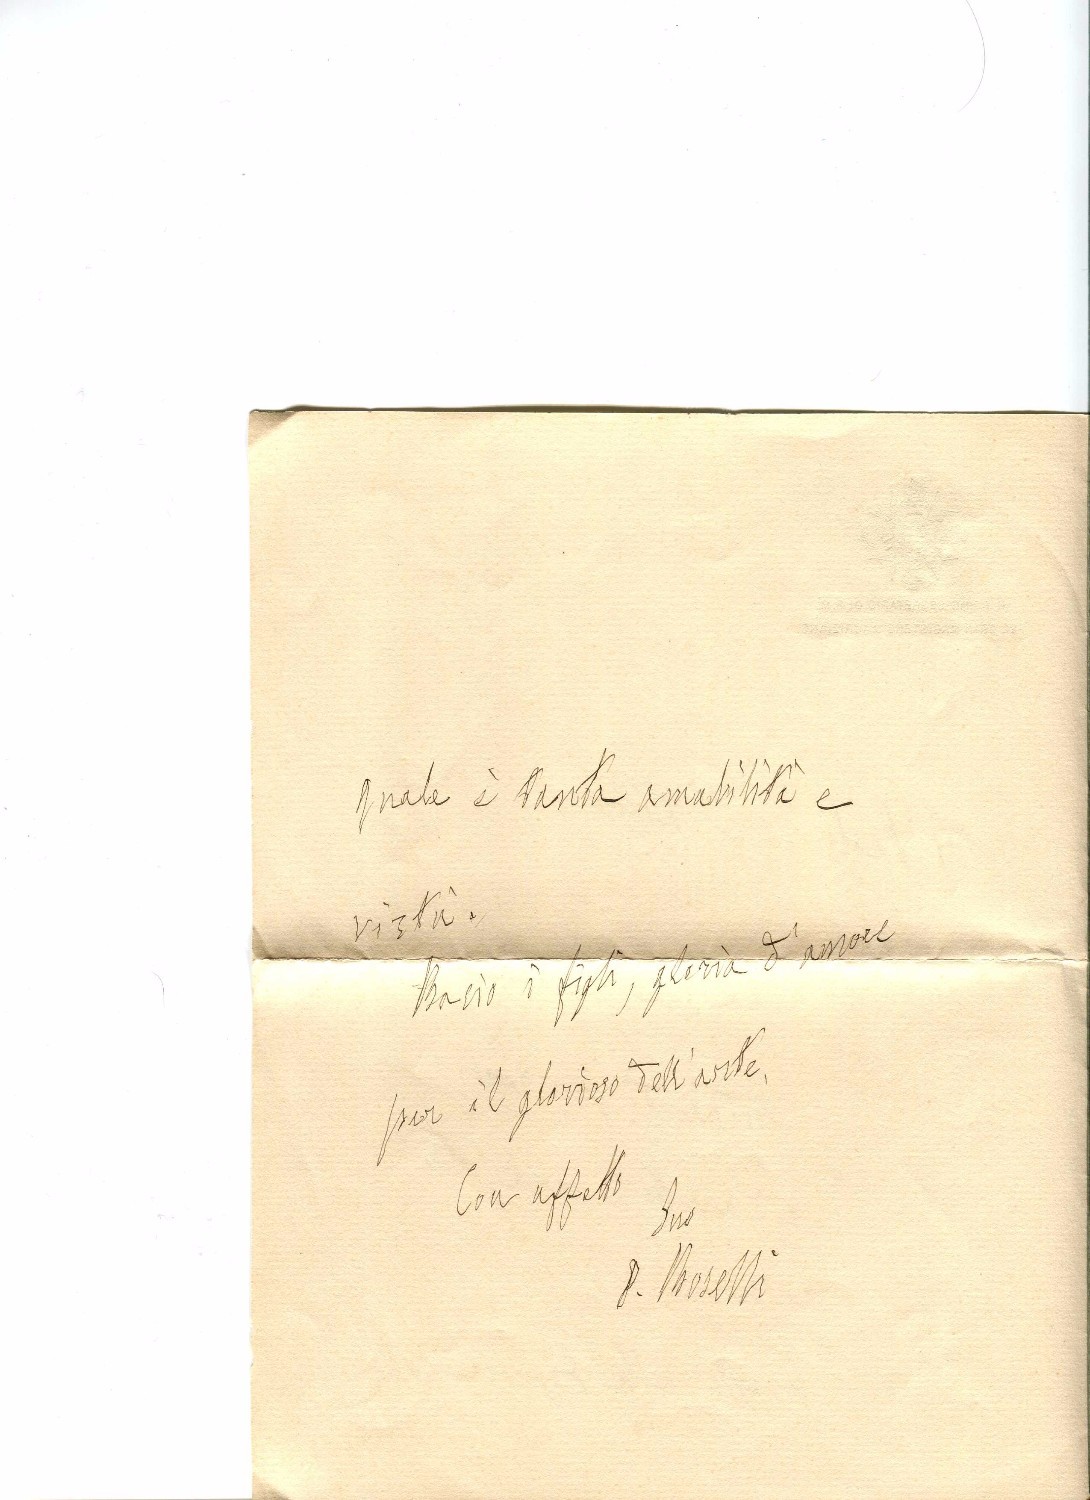 quale è tanta amabilità e
virtù.
Bacio i figli, gloria d'amore
per il glorioso dell'arte.
Con affetto
Suo
P. Boselli